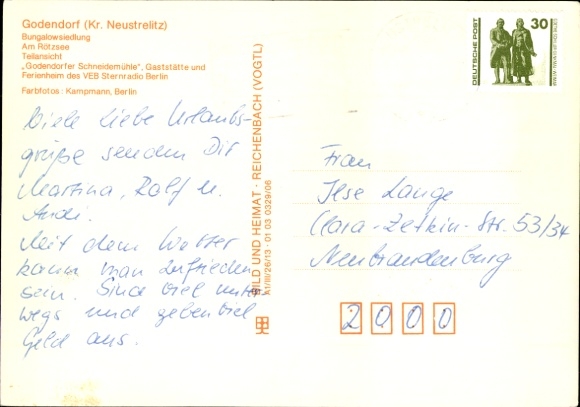 Godendorf (Kr. Neustrelitz)
Bungalowsiedlung
Am Rötzsee
Teilansicht
„Godendorfer Schneidemühle", Gaststätte und
Ferienheim des VEB Sternradio Berlin
Farbfotos : Kampmann, Berlin
Viele liebe Urlaubs-
grüße senden Dir
Martina, Ralf u.
Andi.
Mit dem Wetter
kann man zufrieden
sein. Sind viel unter-
wegs und geben viel
Geld aus.
BILD UND HEIMAT · REICHENBACH (VOGTL)
A1/III/26/13 · 01 03 0329/06
DEUTSCHE POST
30
Frau
Ilse Lange
Clara-Zetkin-Str. 53/34
Neubrandenburg
2000